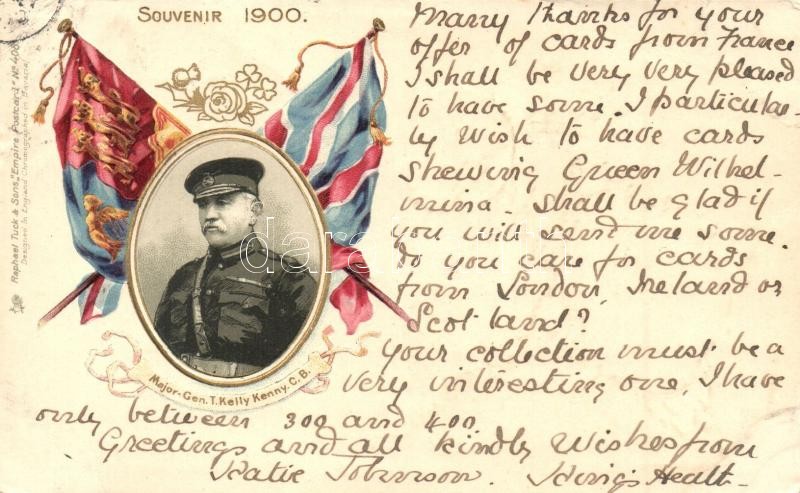 SOUVENIR 1900.
Raphael Tuck & Sons "Empire Postcard" No 400
Designed in England Chromographed in Bavaria
Major-Gen. T. Kelly Kenny. C. B.
Many thanks for your
offer of cards from France
I shall be very very pleased
to have some. I particular-
ly wish to have cards
shewing Queen Wilhel-
mina. Shall be glad if
you will send me some.
do you care for cards
from London, Ireland or
Scotland?
your collection must be a
very interesting one. I have
only between 300 and 400
Greetings and all kindly wishes from
Katie Johnson. Kings Heath-
darabanth